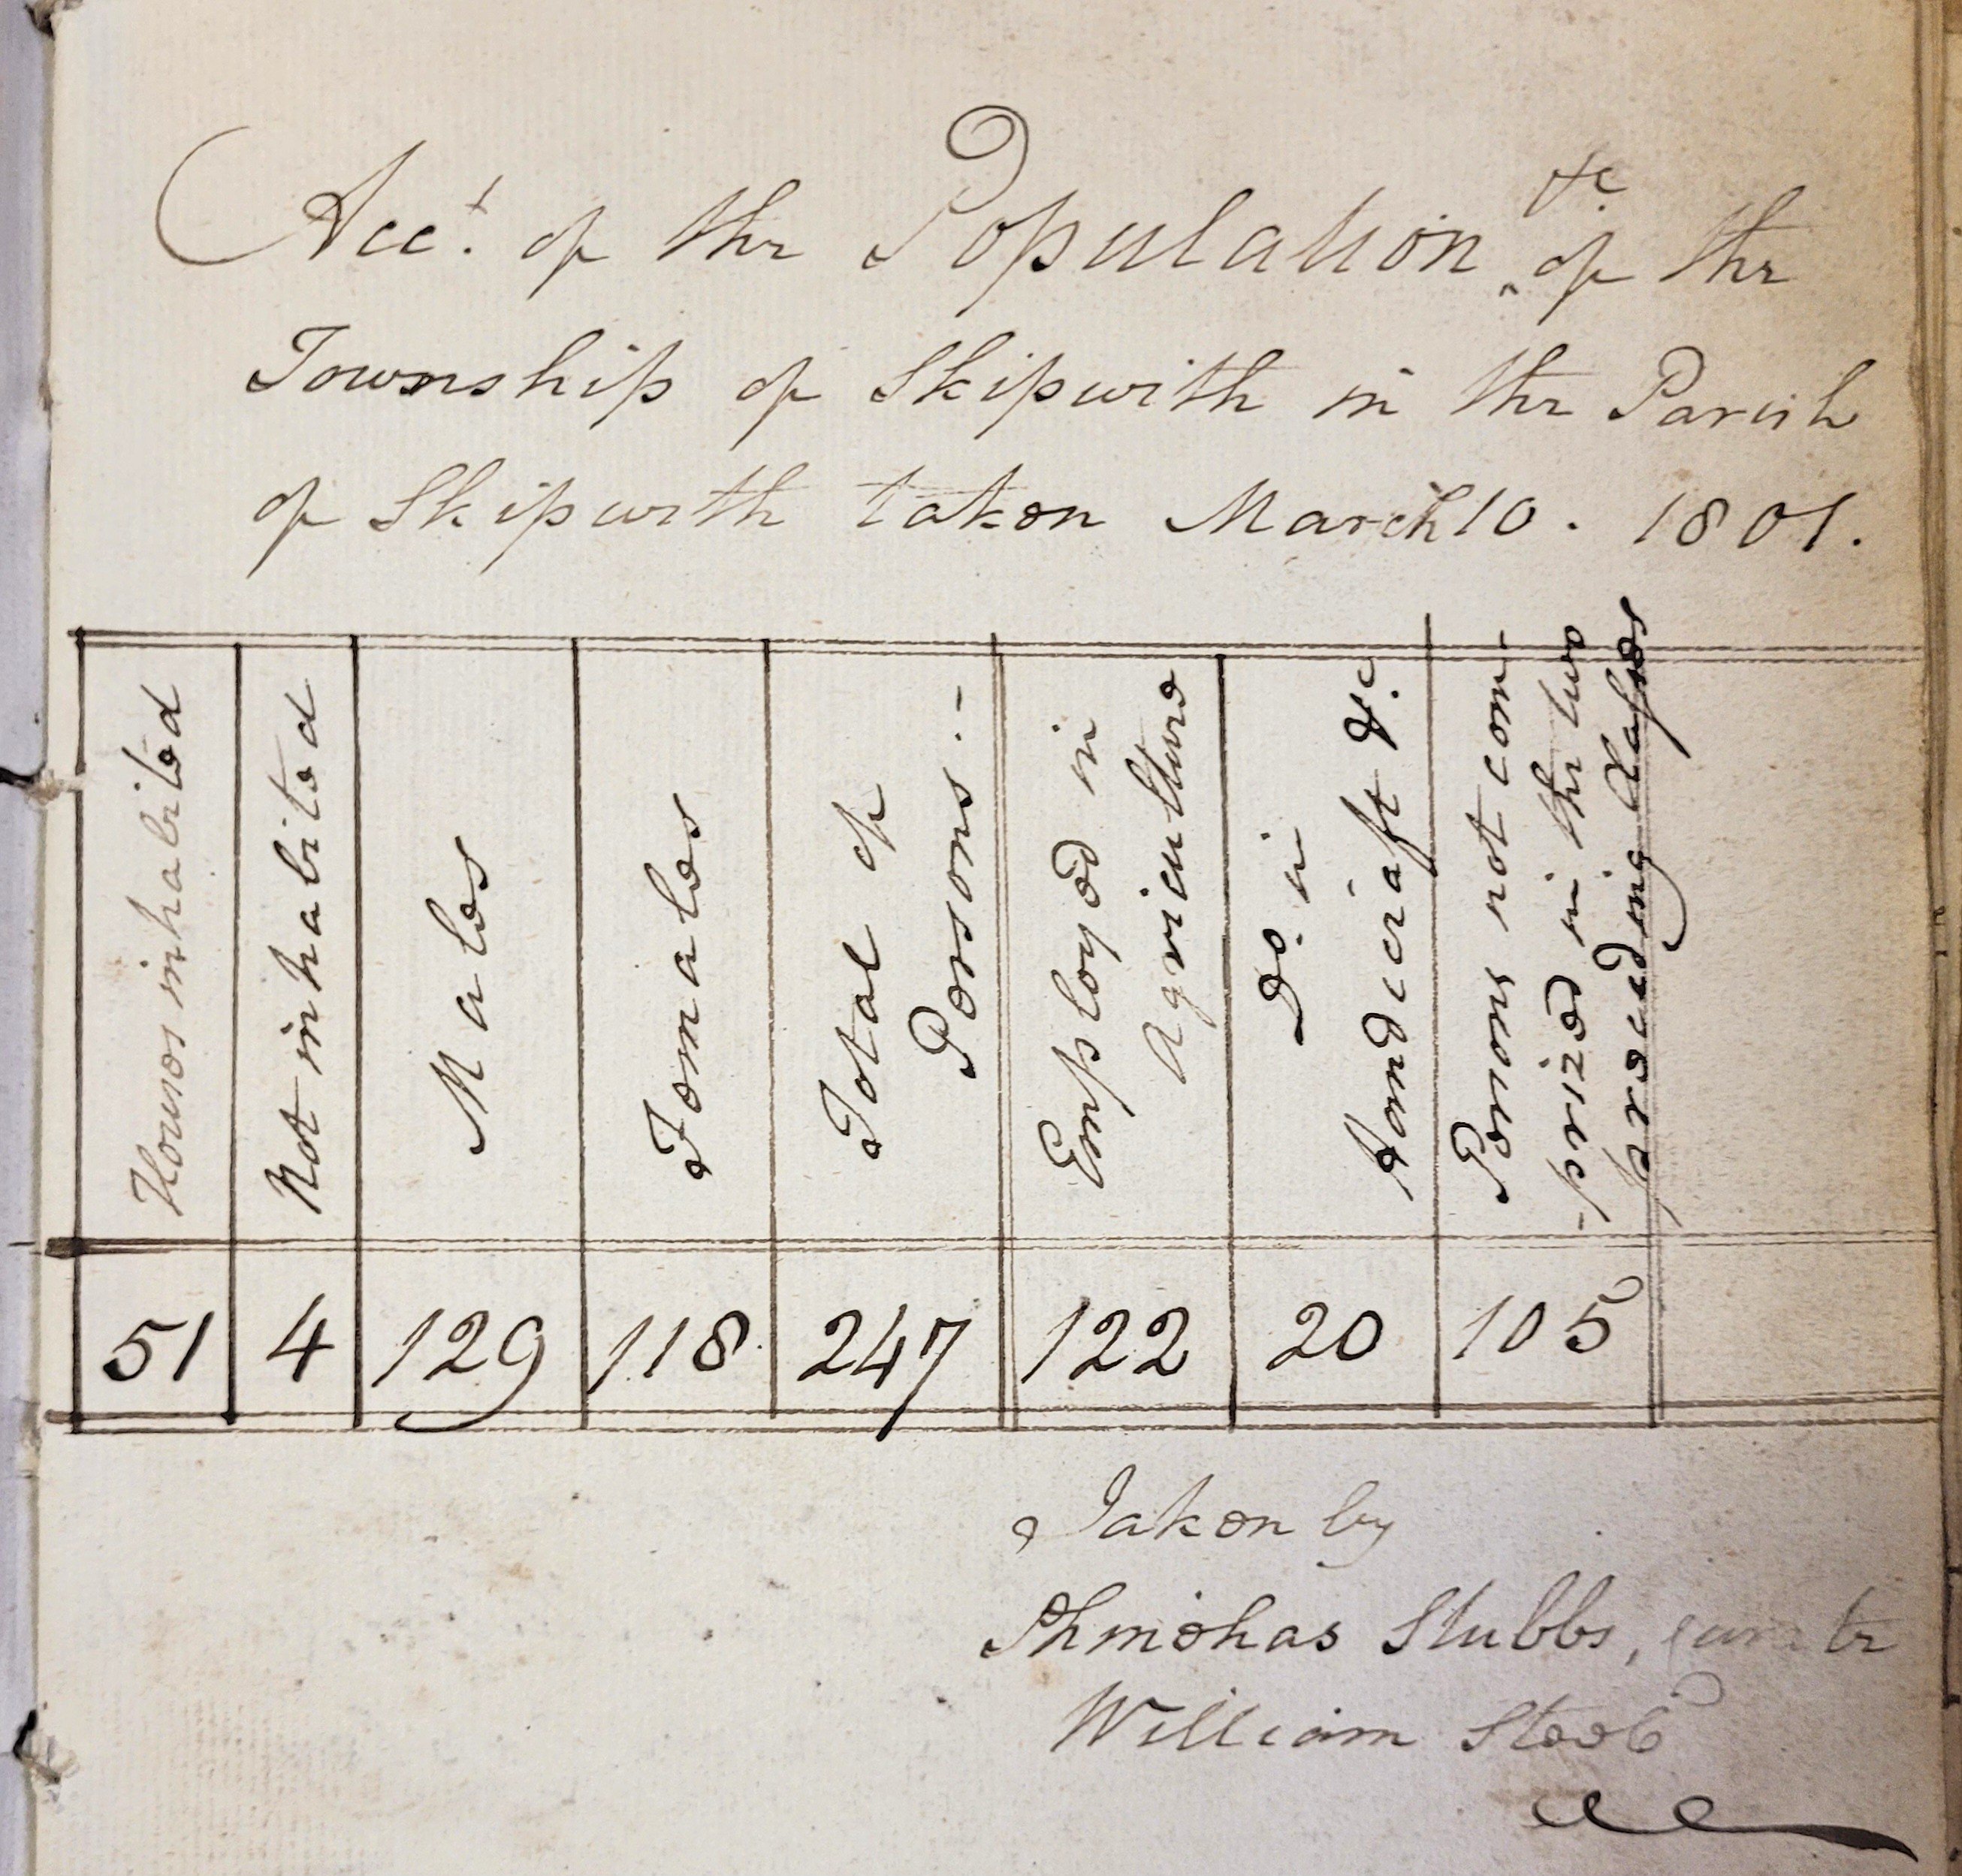 Acct. of the Population &c. of the
Township of Skipwith in the Parish
of Skipwith taken March 10. 1801.
Houses inhabited
Not inhabited
Males
Females
Total of
Persons.-
Employed in
Agriculture
Do. in
Handicraft &c.
Persons not com-
-prized in the two
preceeding Classes
51 4 129 118 247 122 20 105
Taken by
Stubbs, curate
William